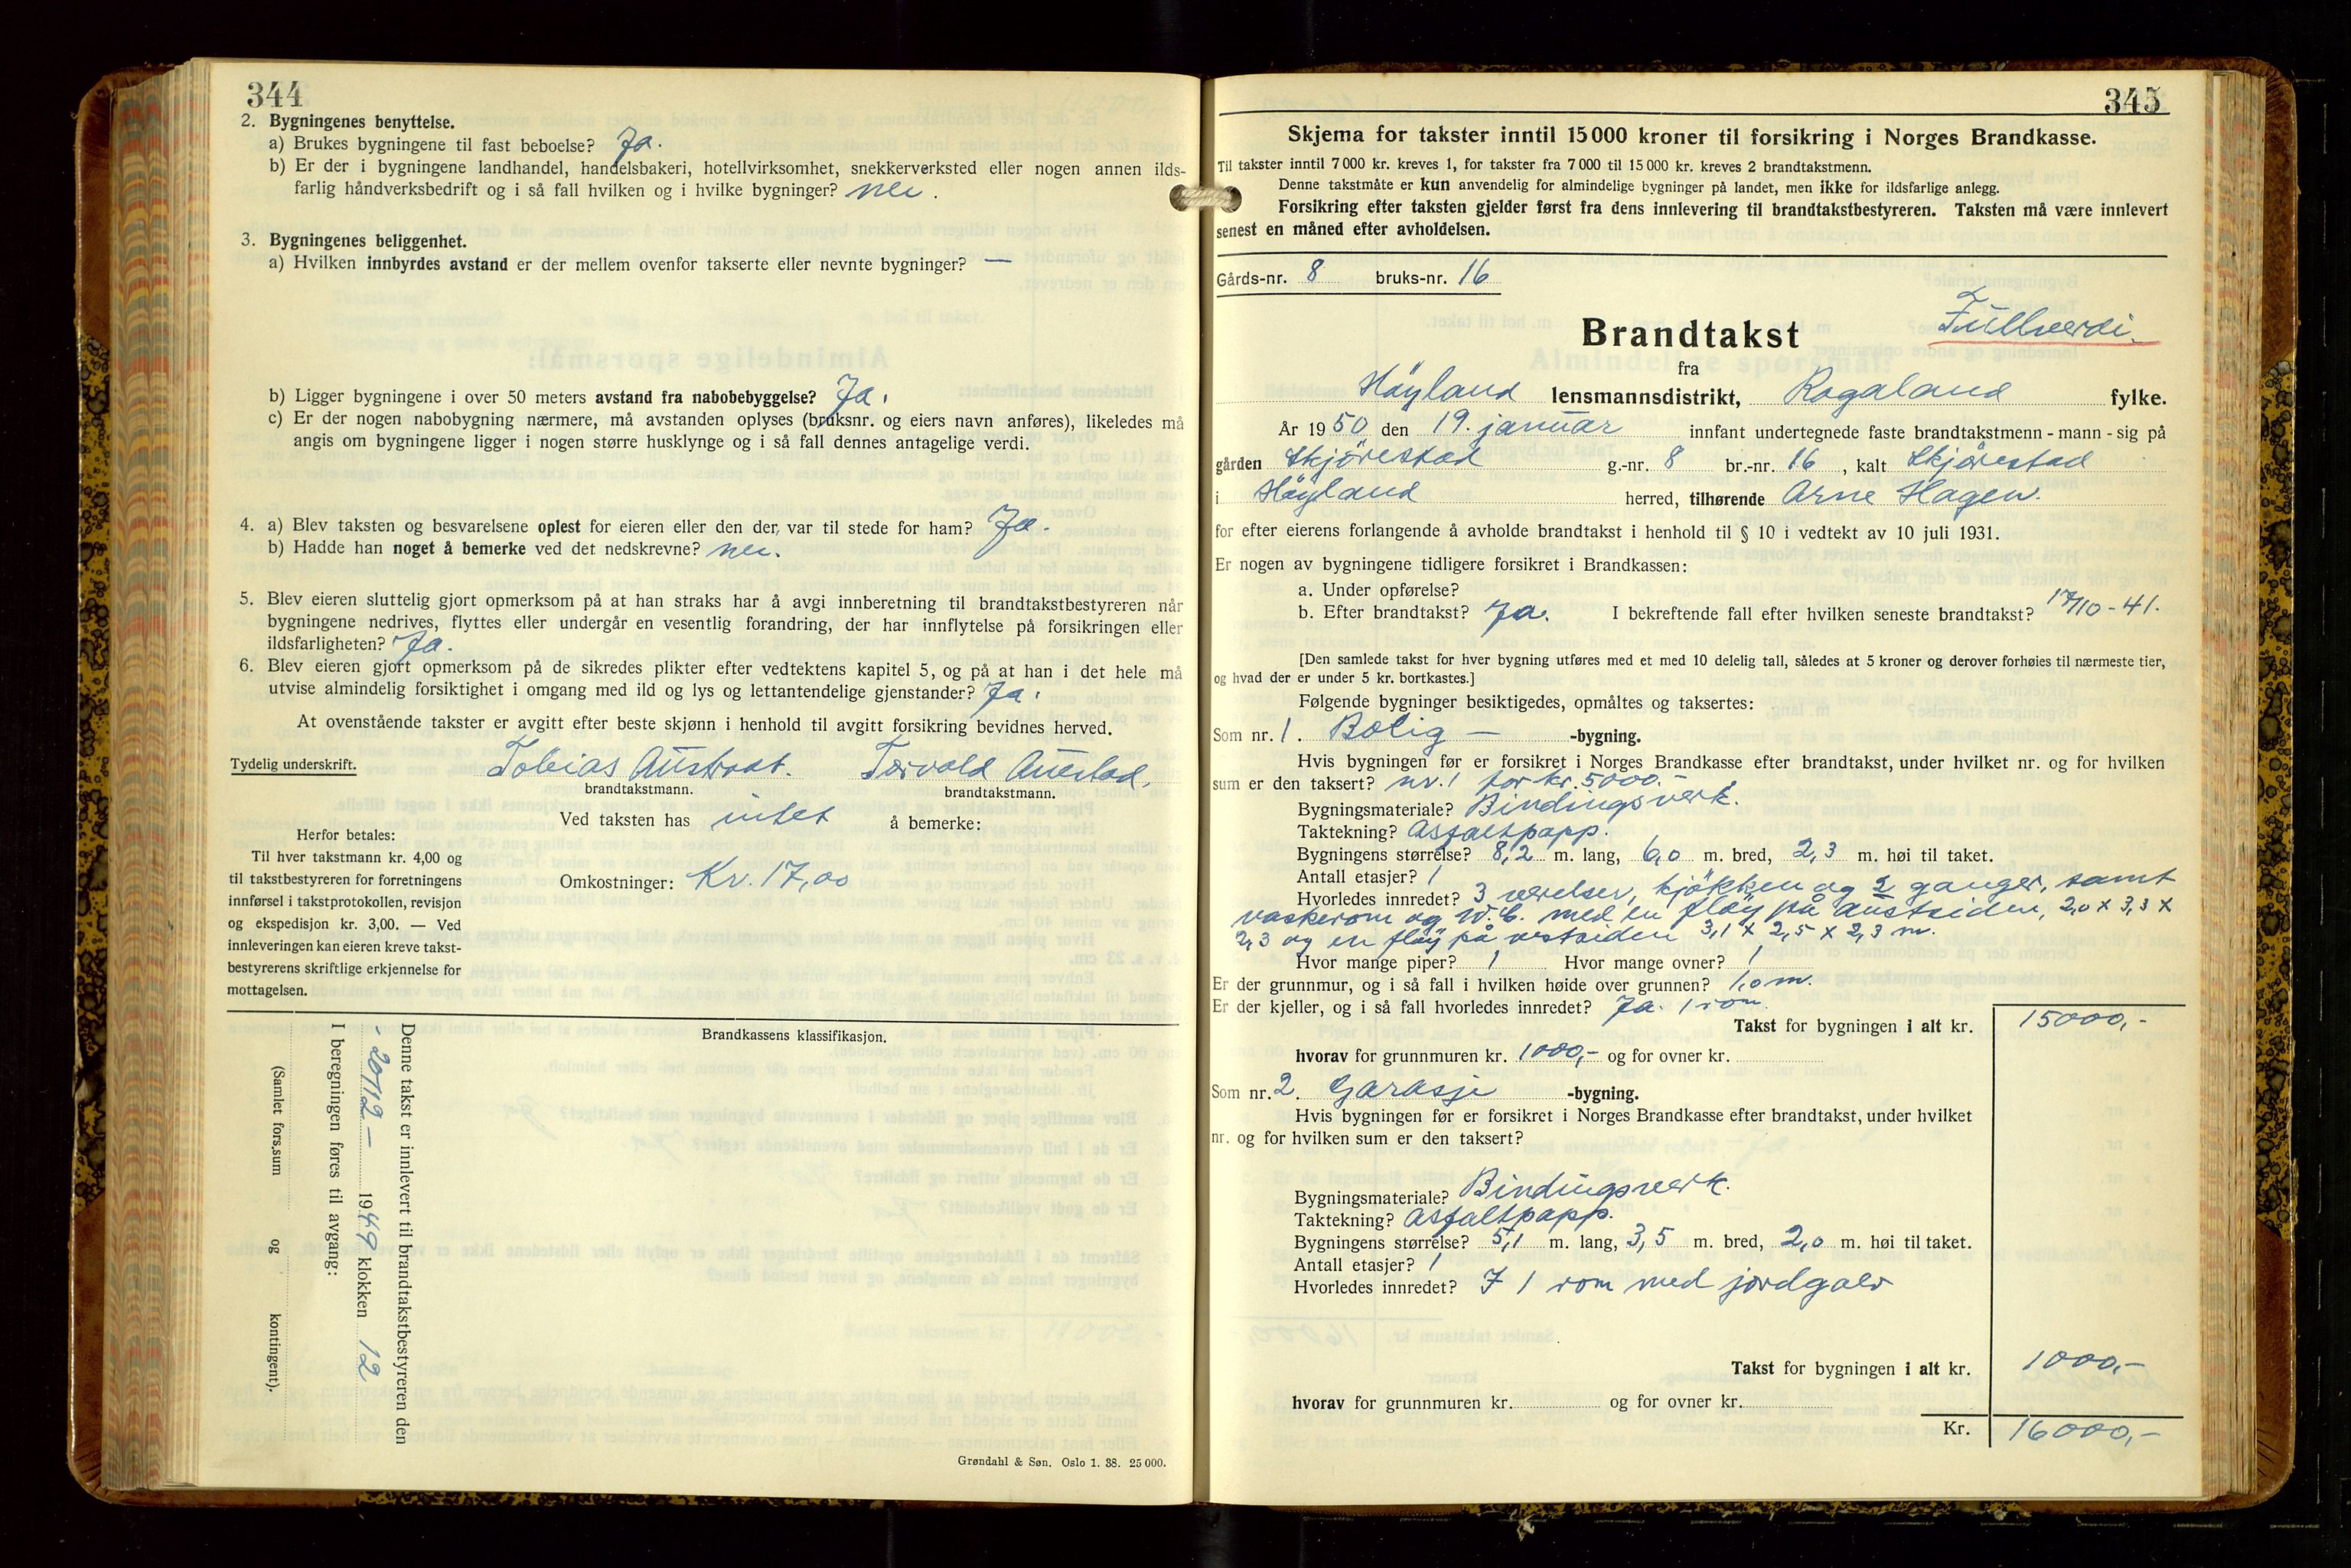 344
2. Bygningenes benyttelse.
a) Brukes bygningene til fast beboelse? Ja.
b) Er der i bygningene landhandel, handelsbakeri, hotellvirksomhet, snekkerverksted eller nogen annen ilds-
farlig håndverksbedrift og i så fall hvilken og i hvilke bygninger? nei .
3. Bygningenes beliggenhet.
a) Hvilken innbyrdes avstand er der mellem ovenfor takserte eller nevnte bygninger? —
b) Ligger bygningene i over 50 meters avstand fra nabobebyggelse? Ja.
c) Er der nogen nabobygning nærmere, må avstanden oplyses (bruksnr. og eiers navn anføres), likeledes må
angis om bygningene ligger i nogen større husklynge og i så fall dennes antagelige verdi.
4. a) Blev taksten og besvarelsene oplest for eieren eller den der, var til stede for ham? Ja.
b) Hadde han noget å bemerke ved det nedskrevne? nei.
5. Blev eieren sluttelig gjort opmerksom på at han straks har å avgi innberetning til brandtakstbestyreren når
bygningene nedrives, flyttes eller undergår en vesentlig forandring, der har innflytelse på forsikringen eller
ildsfarligheten? Ja.
6. Blev eieren gjort opmerksom på de sikredes plikter efter vedtektens kapitel 5, og på at han i det hele må
utvise almindelig forsiktighet i omgang med ild og lys og lettantendelige gjenstander? Ja.
At ovenstående takster er avgitt efter beste skjønn i henhold til avgitt forsikring bevidnes herved.
Tydelig underskrift. Tobias Austraat. Torvald Auestad.
brandtakstmann. brandtakstmann.
Ved taksten has intet å bemerke:
Herfor betales:
Til hver takstmann kr. 4,00 og
til takstbestyreren for forretningens
innførsel i takstprotokollen, revisjon
og ekspedisjon kr. 3,00. — Ved
innleveringen kan eieren kreve takst-
bestyrerens skriftlige erkjennelse for
mottagelsen.
Omkostninger: Kr. 17,00
Brandkassens klassifikasjon.
Denne takst er innlevert til brandtakstbestyreren den
- 20/12 - 1949 klokken 12
I beregningen føres til avgang:
(Samlet fors.sum og kontingent).
Grøndahl & Søn. Oslo 1. 38. 25 000.
345
Skjema for takster inntil 15 000 kroner til forsikring i Norges Brandkasse.
Til takster inntil 7 000 kr. kreves 1, for takster fra 7 000 til 15 000 kr. kreves 2 brandtakstmenn.
Denne takstmåte er kun anvendelig for almindelige bygninger på landet, men ikke for ildsfarlige anlegg.
Forsikring efter taksten gjelder først fra dens innlevering til brandtakstbestyreren. Taksten må være innlevert
senest en måned efter avholdelsen.
Gårds-nr. 8 bruks-nr. 16
Fullverdi.
Brandtakst
fra
Høyland lensmannsdistrikt, Rogaland fylke.
År 1950 den 19. januar innfant undertegnede faste brandtakstmenn - mann - sig på
gården Skjørestad g.-nr. 8 br.-nr. 16 , kalt Skjørestad
i Høyland herred, tilhørende Arne Hagen.
for efter eierens forlangende å avholde brandtakst i henhold til § 10 i vedtekt av 10 juli 1931.
Er nogen av bygningene tidligere forsikret i Brandkassen:
a. Under opførelse?
b. Efter brandtakst? Ja. I bekreftende fall efter hvilken seneste brandtakst? 17/10-41.
[Den samlede takst for hver bygning utføres med et med 10 delelig tall, således at 5 kroner og derover forhøies til nærmeste tier,
og hvad der er under 5 kr. bortkastes.]
Følgende bygninger besiktigedes, opmåltes og taksertes:
Som nr. 1. Bolig — -bygning.
Hvis bygningen før er forsikret i Norges Brandkasse efter brandtakst, under hvilket nr. og for hvilken
sum er den taksert? nr. 1 for kr. 5000.-
Bygningsmateriale? Bindingsverk.
Taktekning? Asfaltpapp.
Bygningens størrelse? 8,2 m. lang, 6,0 m. bred, 2,3 m. høi til taket.
Antall etasjer? 1
Hvorledes innredet? 3 værelser, kjøkken og 2 ganger, samt
vaskerom og W.C. med en fløy på austsiden, 2,0 x 3,3 x
2,3 og en fløy på vestsiden 3,1 x 2,5 x 2,3 m.
Hvor mange piper? 1 Hvor mange ovner? 1
Er der grunnmur, og i så fall i hvilken høide over grunnen? 1,0 m.
Er der kjeller, og i så fall hvorledes innredet? Ja. 1 rom.
Takst for bygningen i alt kr. 15000,-
hvorav for grunnmuren kr. 1000,- og for ovner kr.
Som nr. 2. Garasje -bygning.
Hvis bygningen før er forsikret i Norges Brandkasse efter brandtakst, under hvilket
nr. og for hvilken sum er den taksert?
Bygningsmateriale? Bindingsverk.
Taktekning? Asfaltpapp.
Bygningens størrelse? 5,1 m. lang, 3,5 m. bred, 2,0 m. høi til taket.
Antall etasjer? 1
Hvorledes innredet? I 1 rom med jordgolv
Takst for bygningen i alt kr. 1000,-
hvorav for grunnmuren kr. og for ovner kr.
Kr. 16000,-